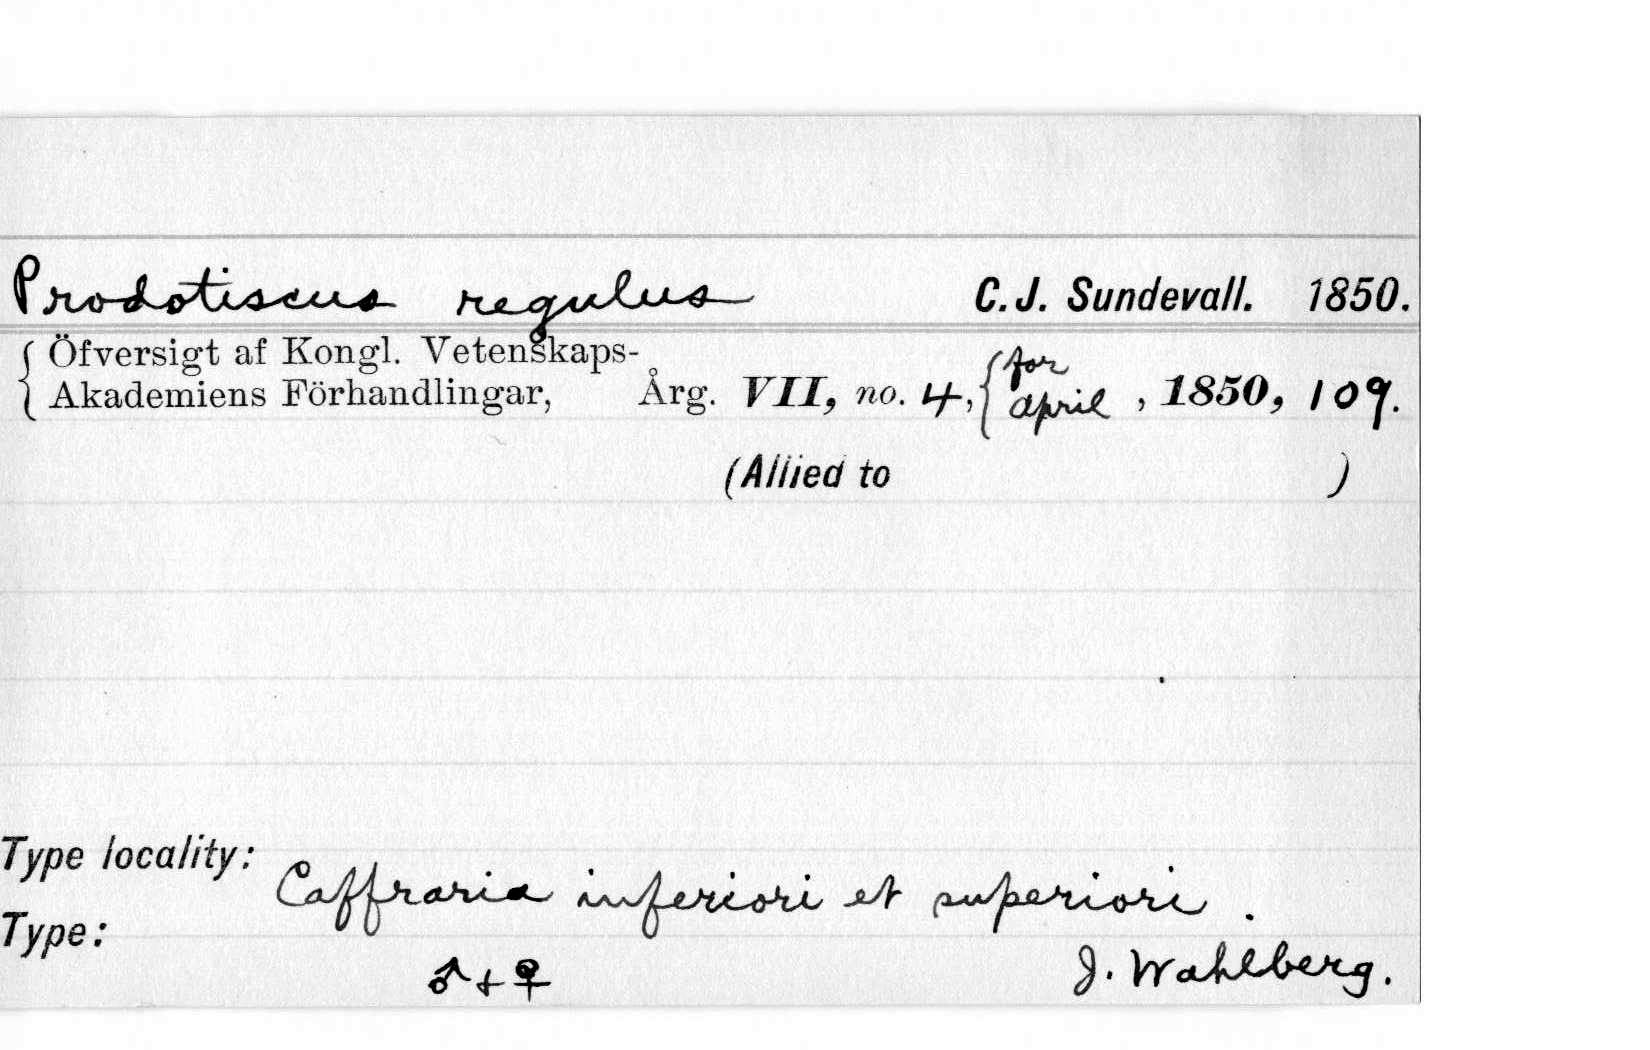 Prodotiscus regulus C. J. Sundevall. 1850.
{ Öfversigt af Kongl. Vetenskaps-
Akademiens Förhandlingar, Årg. VII, no. 4, { for april , 1850, 109.
(Allied to )
Type locality: Caffraria inferiori et superiori .
Type: ♂ + ♀ J. Wahlberg.